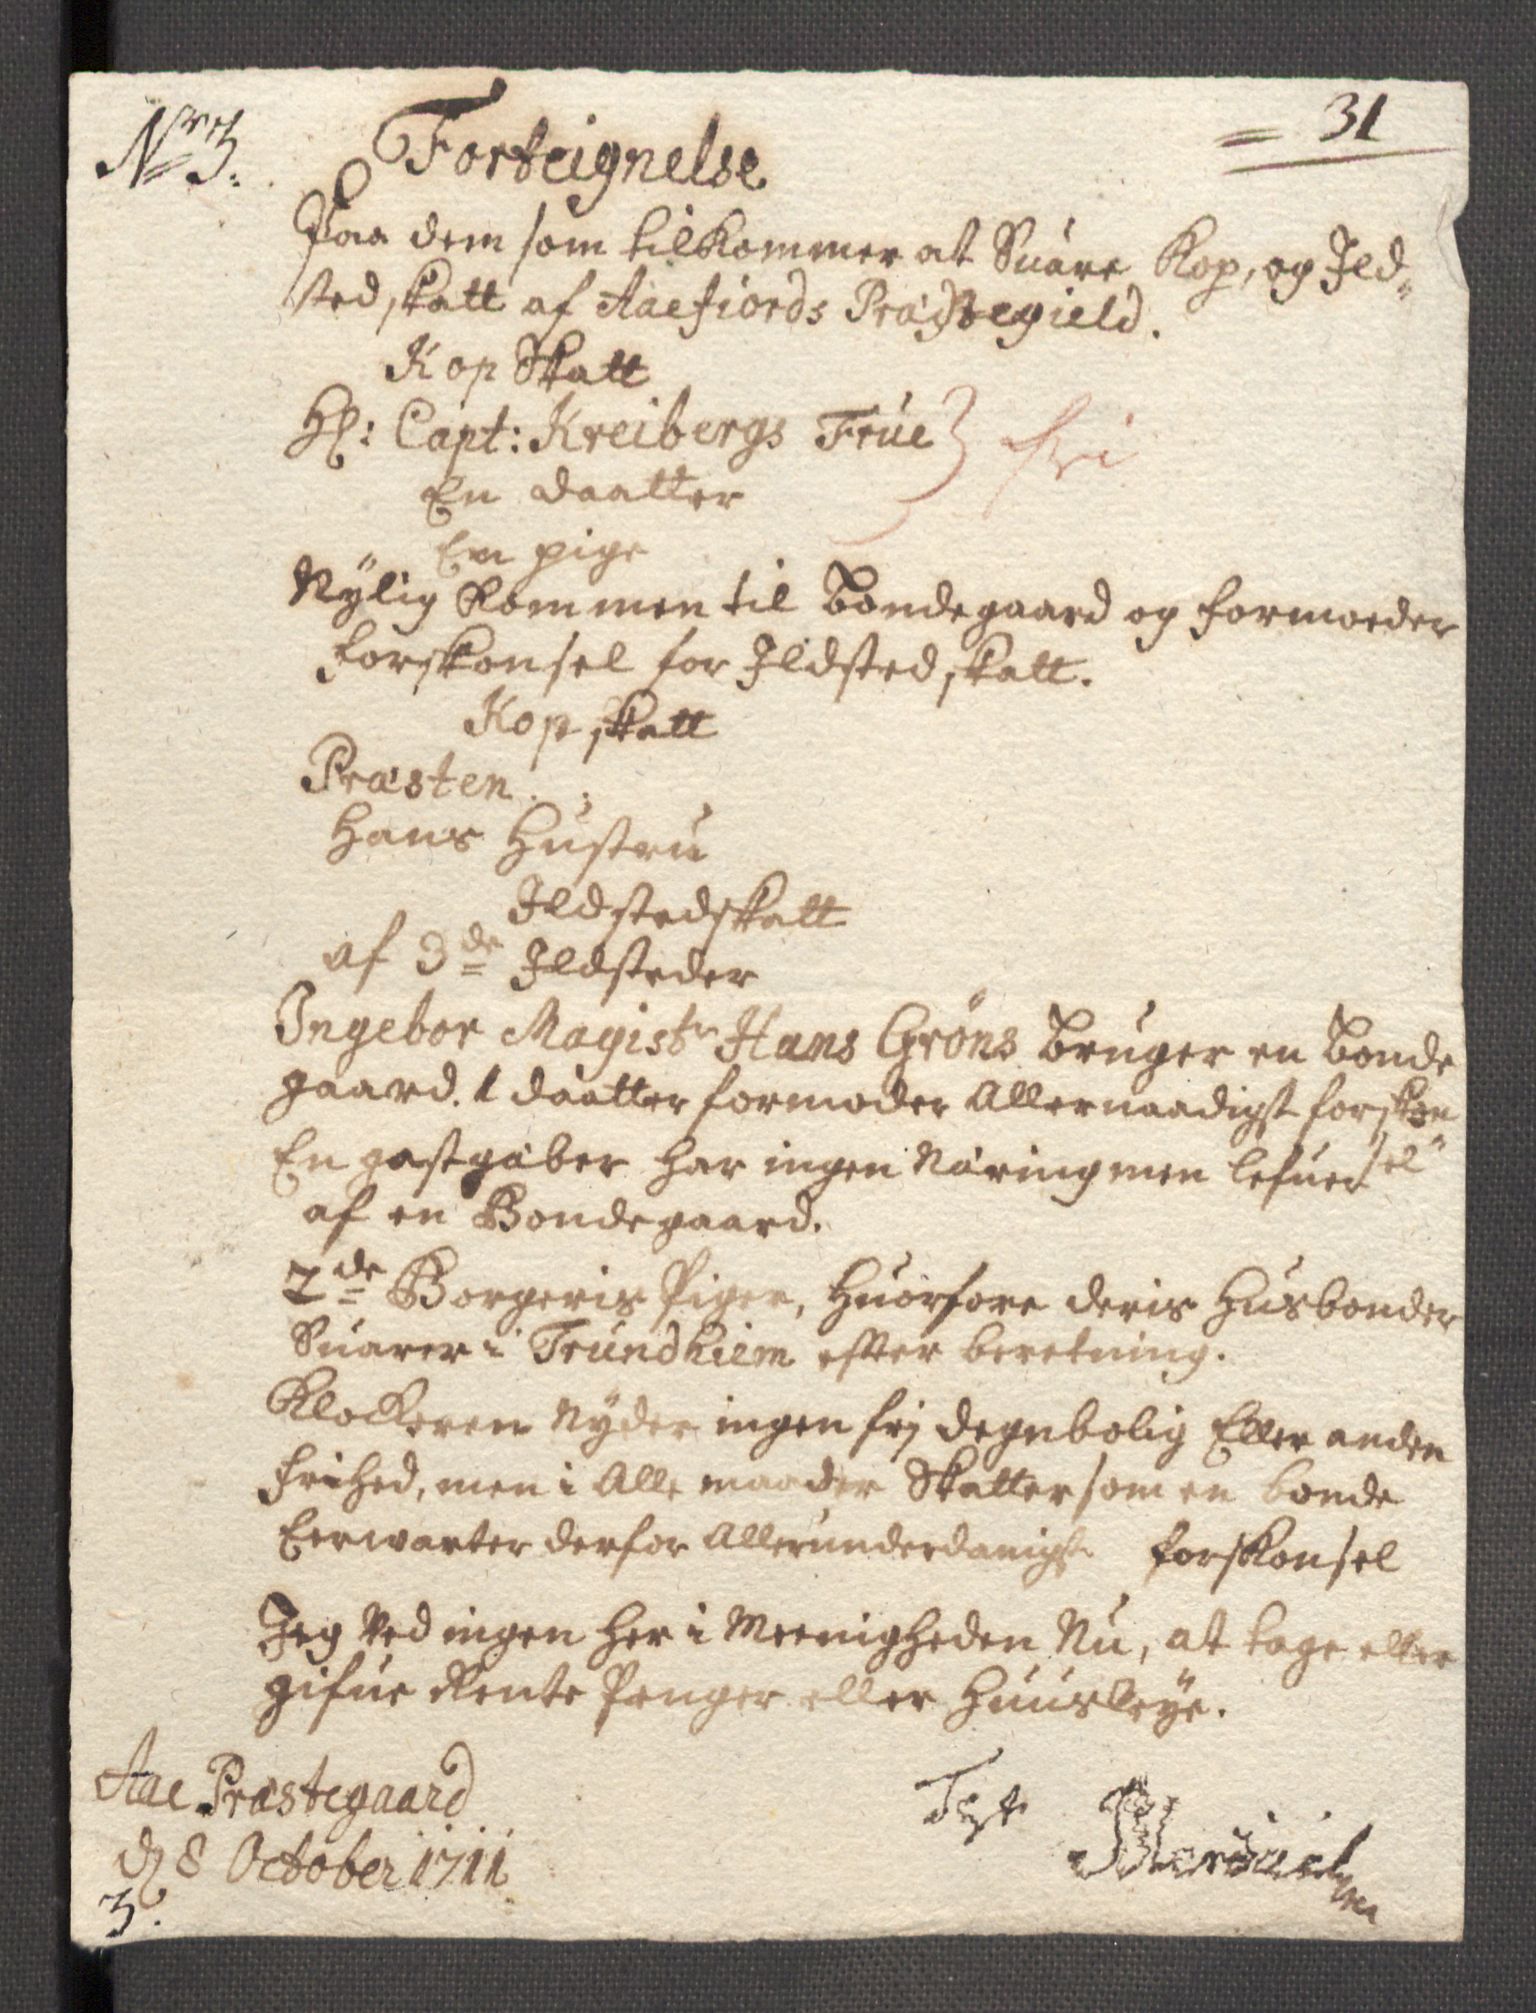 Nr 3.
= 31
Forteignelse
Paa dem som tilkommer at Suare Kop, og Ild-
sted skatt af Aaefiords Præstegield.
Kop Skatt
Hr: Capt: Kreibergs Frue } fri
En daatter
En pige
Nÿlig kommen til Bondegaard og formoeder
forskonsel for Ildsted skatt.
Kop skatt
Præsten
Hans Hustru
Ildstedskatt
af 3de Ildsteder
Ingebor Magistr Hans Gröns bruger en Bonde
gaard. 1 daatter formoder Allernaadigst forskon
sel
En gastgæber har ingen Næring men lefuer
af en Bondegaard.
2de Borgeris Piger, huorfore deris Husbonder
Suarer i Trundhiem efter beretning.
Klockeren Nÿder ingen frj degnbolig Eller anden
frihed, men i Alle maader Skatter som en bonde
Eerwarter derfor Allerunderdanigst forskonsel
Jeg Ved ingen her i Meenigheden Nu, at tage eller
gifue Rente Penger eller Huusleÿe.
Aae Præstegaard
d 8 October 1711
3.
Test